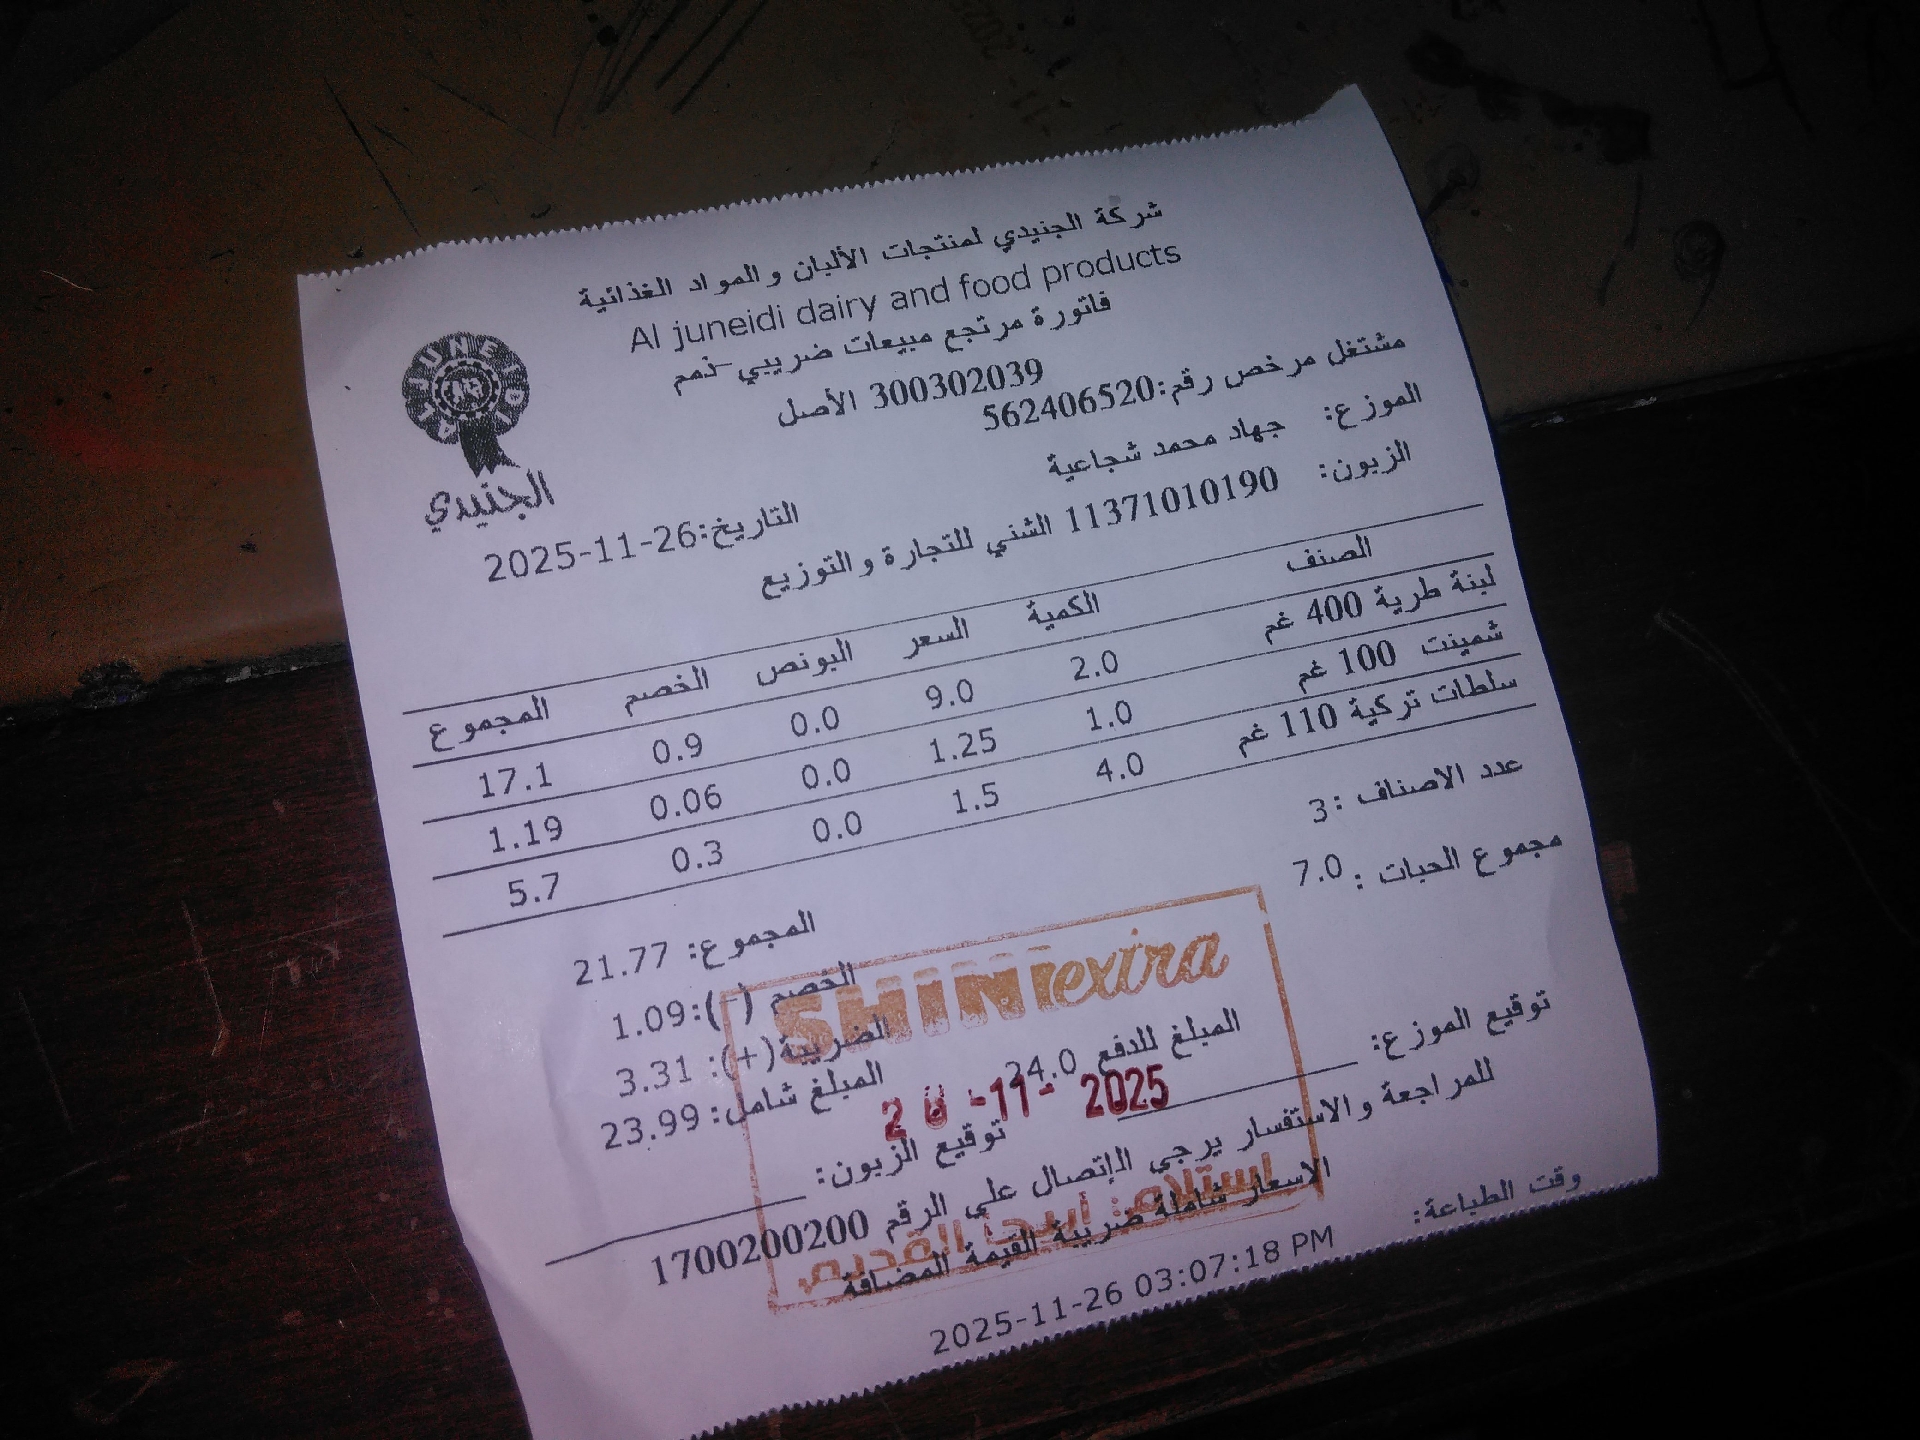 شركة الجنيدي لمنتجات الألبان والمواد الغذائية
Al juneidi dairy and food products
فاتورة مرتجع مبيعات ضريبي-ذمم
300302039 الأصل
مشتغل مرخص رقم:562406520
AL JUNEIDI
الجنيدي
الموزع: جهاد محمد شجاعية
التاريخ:2025-11-26
الزبون: 11371010190 الشني للتجارة والتوزيع
الصنف الكمية السعر البونص الخصم المجموع
لبنة طرية 400 غم 2.0 9.0 0.0 0.9 17.1
شمينت 100 غم 1.0 1.25 0.0 0.06 1.19
سلطات تركية 110 غم 4.0 1.5 0.0 0.3 5.7
عدد الاصناف :3
مجموع الحبات : 7.0
المجموع: 21.77
الخصم (-):1.09
الضريبة(+): 3.31
المبلغ شامل: 23.99
المبلغ للدفع 24.0
SHINI extra
-11- 2025
استلام: أيبح القديم
توقيع الموزع:
توقيع الزبون:
للمراجعة والاستفسار يرجى الإتصال على الرقم 1700200200
الاسعار شاملة ضريبة القيمة المضافة
وقت الطباعة: 2025-11-26 03:07:18 PM